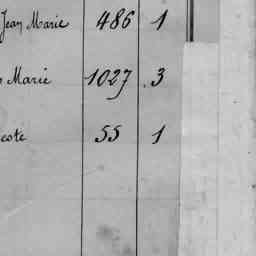 Jean Marie 486 1
Marie 1027 3
cote 55 1